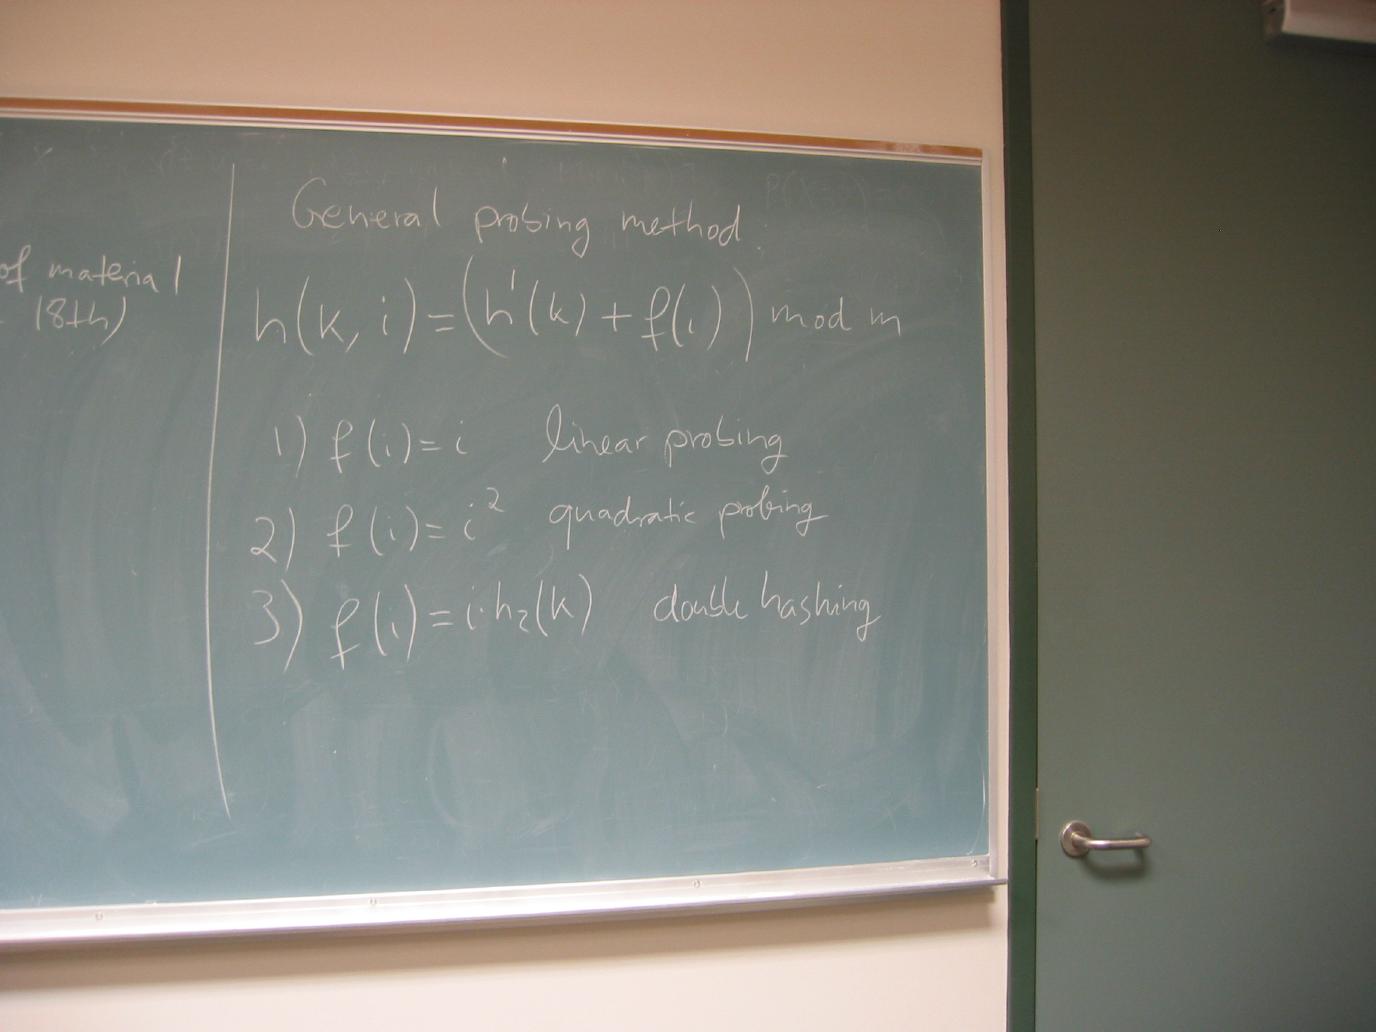 of material
18th)
General probing method
h(k, i) = (h'(k) + f(i)) mod m
1) f(i) = i linear probing
2) f(i) = i² quadratic probing
3) f(i) = i·h₂(k) double hashing